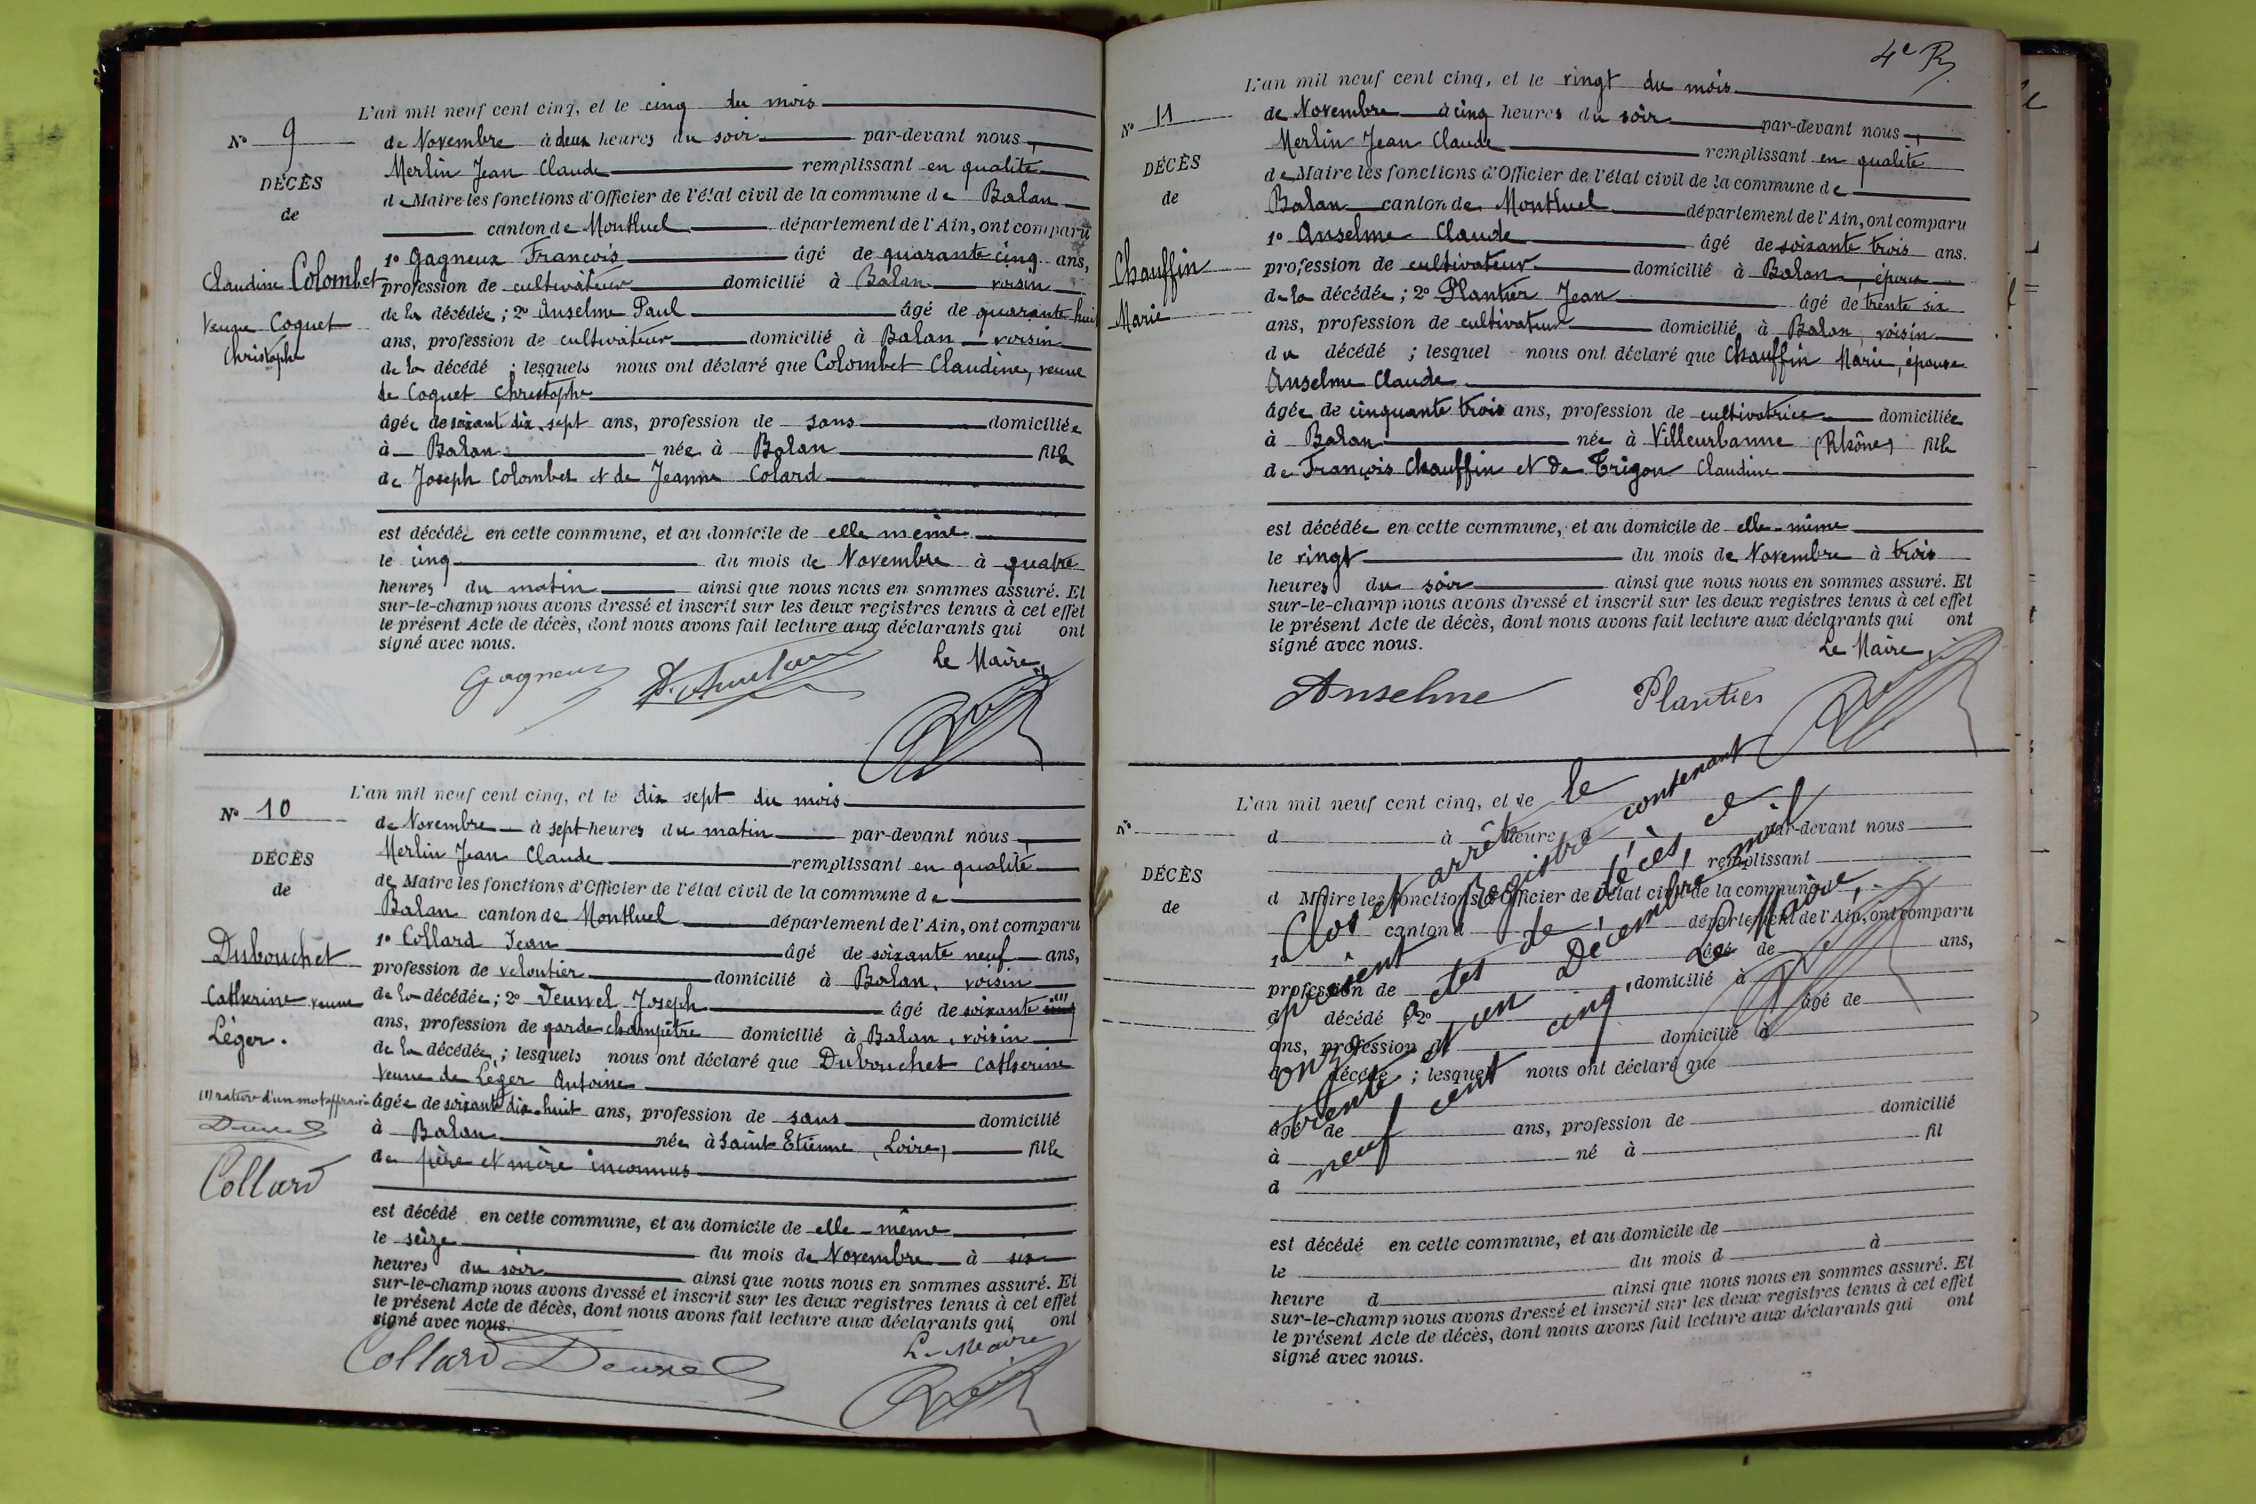 L'an mil neuf cent cinq, et le cinq du mois
N° 9
de Novembre à deux heures du soir par-devant nous,
Merlin Jean Claude remplissant en qualité
DÉCÈS
de Maire les fonctions d'Officier de l'état civil de la commune de Balan
de
canton de Montluel département de l'Ain, ont comparu
1° Gagneux François âgé de quarante cinq ans,
Claudine Colombet
profession de cultivateur domicilié à Balan voisin
de la décédée ; 2° Anselme Paul âgé de quarante huit
Veuve Coquet
ans, profession de cultivateur domicilié à Balan voisin
Christophe
de la décédé ; lesquels nous ont déclaré que Colombet Claudine, veuve
de Coquet Christophe
âgée de soixante dix sept ans, profession de sans domiciliée
à Balan née à Balan fille
de Joseph Colombet et de Jeanne Colard
est décédée en cette commune, et au domicile de elle même
le cinq du mois de Novembre à quatre
heures du matin ainsi que nous nous en sommes assuré. Et
sur-le-champ nous avons dressé et inscrit sur les deux registres tenus à cet effet
le présent Acte de décès, dont nous avons fait lecture aux déclarants qui ont
signé avec nous.
Le Maire,
Gagneux
L'an mil neuf cent cinq, et le dix sept du mois
N° 10
de Novembre à sept heures du matin par-devant nous,
Merlin Jean Claude remplissant en qualité
DÉCÈS
de Maire les fonctions d'Officier de l'état civil de la commune de
de
Balan canton de Montluel département de l'Ain, ont comparu
1° Collard Jean âgé de soixante neuf ans,
Dubouchet
profession de veloutier domicilié à Balan, voisin
Catherine veuve
de la décédée ; 2° Deuvel Joseph âgé de soixante (1)
Léger.
ans, profession de garde champêtre domicilié à Balan, voisin
de la décédée ; lesquels nous ont déclaré que Dubouchet Catherine
Veuve de Léger Antoine
(1) rature d'un mot
âgée de soixante dix-huit ans, profession de sans domicilié
à Balan née à Saint Etienne (Loire) fille
de père et mère inconnus
Collard
est décédé en cette commune, et au domicile de elle-même
le seize du mois de Novembre à six
heures du soir ainsi que nous nous en sommes assuré. Et
sur-le-champ nous avons dressé et inscrit sur les deux registres tenus à cet effet
le présent Acte de décès, dont nous avons fait lecture aux déclarants qui ont
signé avec nous.
Le Maire
Collard Deuvel
4e
L'an mil neuf cent cinq, et le vingt du mois
N° 11
de Novembre à cinq heures du soir par-devant nous,
Merlin Jean Claude remplissant en qualité
DÉCÈS
de Maire les fonctions d'Officier de l'état civil de la commune de
de
Balan canton de Montluel département de l'Ain, ont comparu
1° Anselme Claude âgé de soixante trois ans.
Chauffin
profession de cultivateur domicilié à Balan, époux
Marie
de la décédée ; 2° Plantier Jean âgé de trente six
ans, profession de cultivateur domicilié à Balan, voisin
du décédé ; lesquel nous ont déclaré que Chauffin Marie, épouse
Anselme Claude
âgée de cinquante trois ans, profession de cultivatrice domiciliée
à Balan née à Villeurbanne (Rhône) fille
de François Chauffin et de Trigon Claudine
est décédée en cette commune, et au domicile de elle-même
le vingt du mois de Novembre à trois
heures du soir ainsi que nous nous en sommes assuré. Et
sur-le-champ nous avons dressé et inscrit sur les deux registres tenus à cet effet
le présent Acte de décès, dont nous avons fait lecture aux déclarants qui ont
signé avec nous.
Le Maire,
Anselme Plantier
L'an mil neuf cent cinq, et le
N°
d à heure d par-devant nous
remplissant
DÉCÈS
d Maire les fonctions d'Officier de l'état civil de la commune d
de
canton d département de l'Ain, ont comparu
1° âgé de ans,
profession de domicilié à
d décédé ; 2° âgé de
ans, profession de domicilié à
d décédé ; lesquel nous ont déclaré que
âgé de ans, profession de domicilié
à né à fil
d
est décédé en cette commune, et au domicile de
le du mois d à
heure d ainsi que nous nous en sommes assuré. Et
sur-le-champ nous avons dressé et inscrit sur les deux registres tenus à cet effet
le présent Acte de décès, dont nous avons fait lecture aux déclarants qui ont
signé avec nous.
Clos et arrêté le
présent Registre contenant
onze actes de décès, ce
trente et un Décembre mil
neuf cent cinq,
Le Maire,